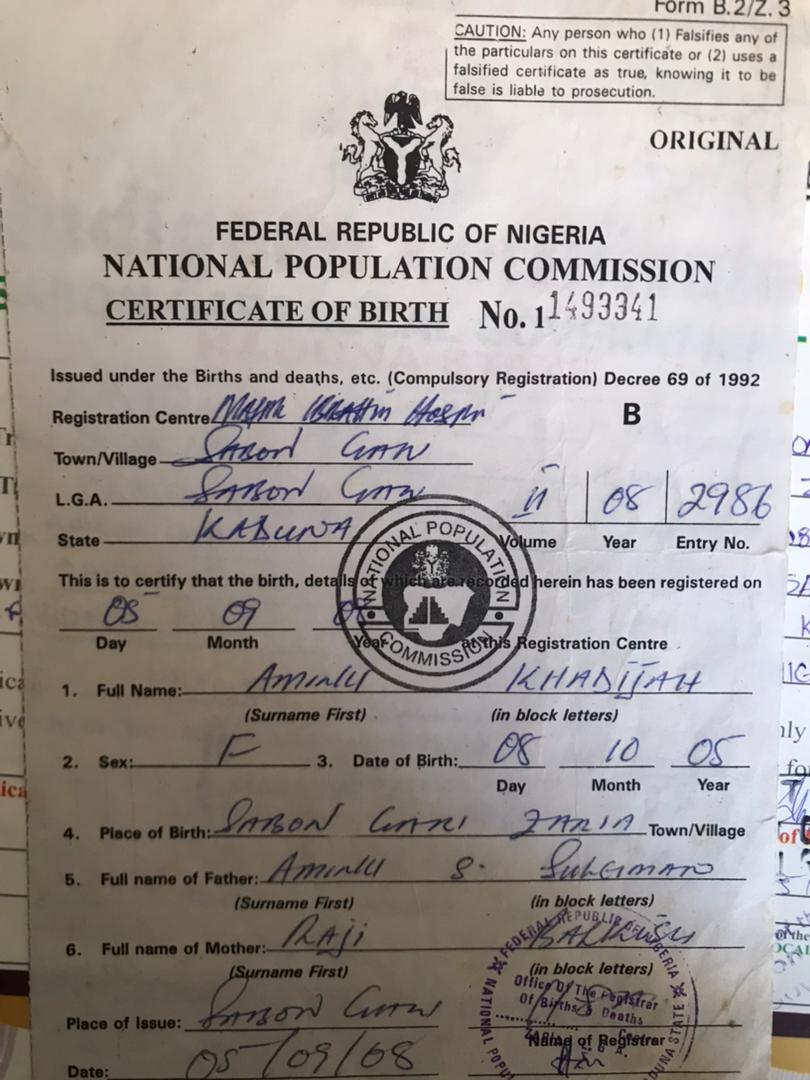 Form B.2/Z.3
CAUTION: Any person who (1) Falsifies any of
the particulars on this certificate or (2) uses a
falsified certificate as true, knowing it to be
false is liable to prosecution.
ORIGINAL
FEDERAL REPUBLIC OF NIGERIA
NATIONAL POPULATION COMMISSION
CERTIFICATE OF BIRTH No. 1 1493341
Issued under the Births and deaths, etc. (Compulsory Registration) Decree 69 of 1992
Registration Centre IBRAHIM B
Town/Village SABON GARI
L.G.A. SABON GARI II 08 2986
State KADUNA Volume Year Entry No.
NATIONAL POPULATION COMMISSION
This is to certify that the birth, details of which are recorded herein has been registered on
05 09
Day Month Year at this Registration Centre
1. Full Name: AMINU KHADIJAH
(Surname First) (in block letters)
2. Sex: F 3. Date of Birth: 08 10 05
Day Month Year
4. Place of Birth: SABON GARI ZARIA Town/Village
5. Full name of Father: AMINU S. SULEIMAN
(Surname First) (in block letters)
6. Full name of Mother: RAJI
(Surname First) (in block letters)
FEDERAL REPUBLIC OF NIGERIA
Office Of The Registrar
Of Births & Deaths
Place of Issue: SABON GARI
Name of Registrar
Date: 05/09/08